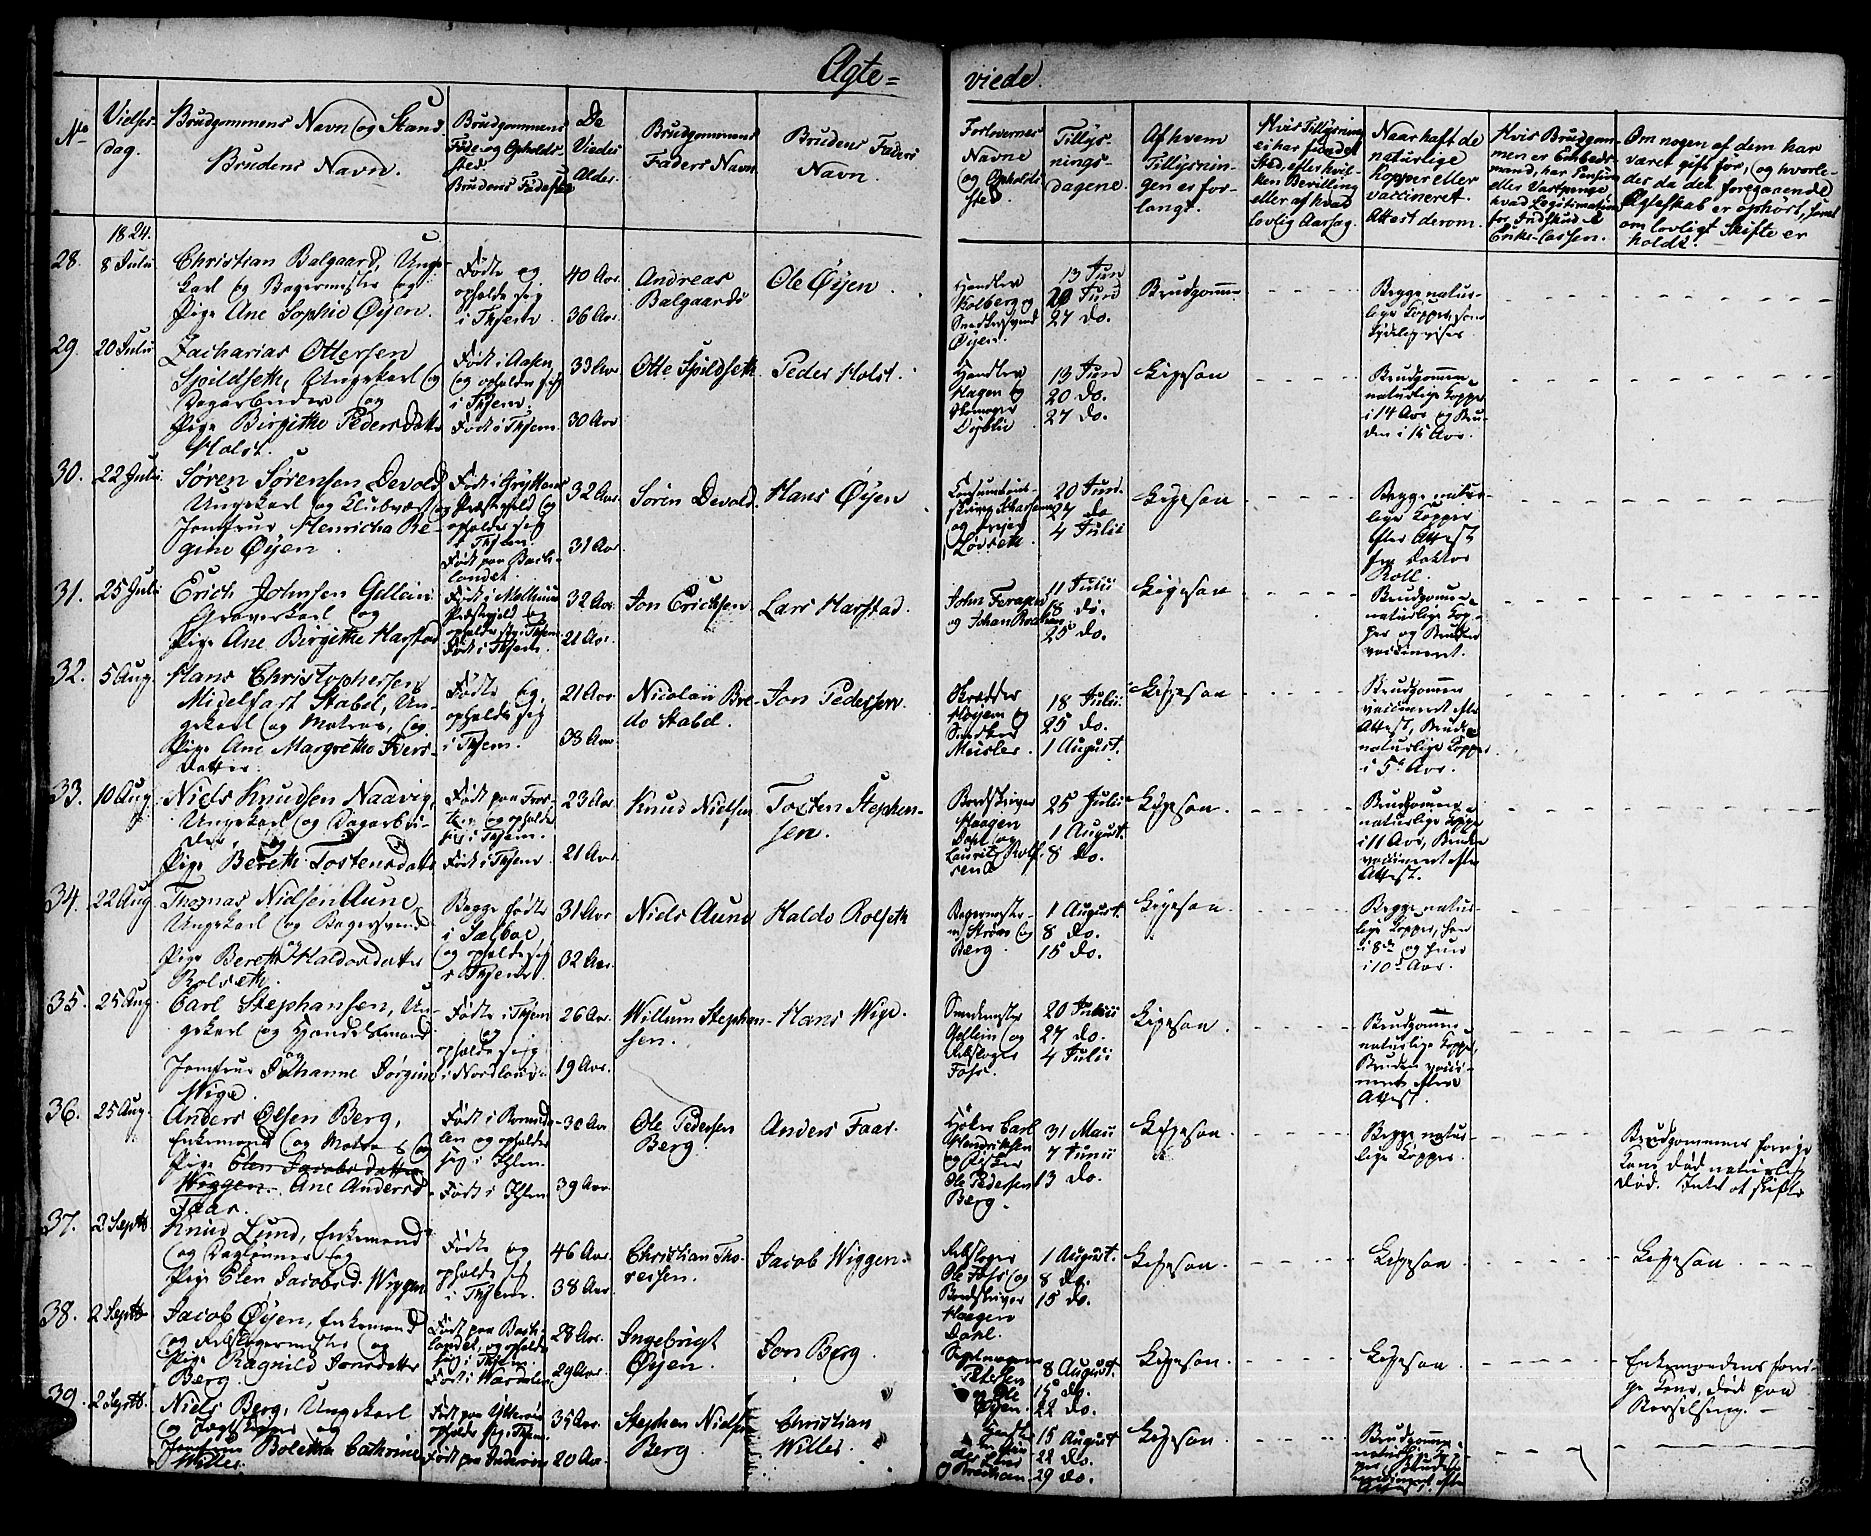 Ægte=
viede.
No
Vielses-
dag.
Brudgommens Navn og Stand.
Brudens Navn.
Brudgommens
Føde og Opholds-
sted.
Brudens Fødested
De
Viedes
Alder.
Brudgommens
Faders Navn
Brudens Faders
Navn.
Forlovernes
Navne
og Opholds-
sted.
Tillys-
nings-
dagene.
Af hvem
Tillysnin-
gen er for-
langt.
Hvis Tillysning
ei har fundet
Sted, efter hvil-
ken Bevilling
eller af hvad
lovlig Aarsag.
Naar haft de
naturlige
kopper eller
vaccineret.
Attest derom.
Hvis Brudgom-
men er Embeds-
mand, har Pension
eller Vartpenge
hvad Legitimation
for Indskud i
Enke-Cassen.
Om nogen af dem har
været gift før, og hvorle-
des da det foregaaende
Ægteskab er ophørt, samt
om lovligt Skifte er
holdt.
1824.
28.
8 Julii
Christian Balgaard, Unge-
karl og Bagermester og
Pige Ane Sophie Øyen.
Fødte og
opholde sig
i Thjem.
40 Aar
36 Aar
Andreas
Balgaards
Ole Øyen
Handler
Kolberg og
Snedkersvend
Øyen.
13 Juni
20 Juni
27 do.
Brudgomme
Begge natur-
lige Kopper, som
tydelig vises.
29.
20 Julii
Zacharias Ottersen
Spildseth, Ungekarl og
Dagarbeider og
Pige Birgithe Pedersdatter
Holst.
Født i Aasen
og opholder sig
i Thjem.
Født i Thjem.
33 Aar
30 Aar
Otte Spildseth
Peder Holst.
Handler
Hagen og
Skomager
Dyblie
13 Juni
20 do.
27 do.
Ligesaa
Brudgommen
naturlige Kopper
i 14 Aar og Bru-
den i 15 Aar.
30.
22 Julii
Søren Sørensen Devold
Ungekarl og Klubvært og
Jomfrue Henricha Re-
gine Øyen
Født i Gryttens
Præstegjeld og
opholder sig
i Thjem.
Født paa Bach-
landet.
32 Aar
31 Aar
Søren Devold
Hans Øyen
og Preyer
Løvseth.
20 Juni
27 do
4 Julii
Ligesaa
Begge natur-
lige Kopper
efter Attest
fra Doktor
Roll.
31.
25 Julii
Erich Johnsen Gellein
Graverkarl og
Pige Ane Birgithe Harstad
Født i Melhuus
Præstegjeld og
opholder sig i Thjem.
Født i Thjem.
32 Aar
21 Aar
Jon Erichsen
Lars Harstad.
11 Julii
18 do.
25 do.
Ligesaa
Brudgommen
naturlige Kop-
per og Bruden
vaccineret.
32.
5 Aug.
Hans Christophersen
Midelfart Stabel, Un-
gekarl og Matros, og
Pige Ane Margrethe Ivers-
datter
Fødte og
opholde sig
i Thjem.
21 Aar
38 Aar
Nicolaii Bre-
do Stabel.
Jon Pedersen.
Skrædder
Høyem og
Snedker
Meisler.
18 Julii
25 do.
1 August.
Ligesaa
Brudgommen
vaccineret efter
Attest, Bruden
naturlige Kopper
i 5te Aar.
33.
10 Aug.
Niels Knudsen Naavig,
Ungekarl og Dagarbei-
der, og
Pige Bereth Tostensdatter
Født paa Fros-
ten og opholder
sig i Thjem.
Født i Thjem.
23 Aar
21 Aar
Knud Nielsen
Tosten Stephen-
sen.
Bordskriver
Haagen
Dahl og
Lauritz Rolf-
sen
25 Julii
1 August.
8 do.
Ligesaa.
Brudgommen
naturlige Kopper
i 11 Aar, Bruden
vaccineret efter
Attest.
34.
22 Aug
Thomas Nielsen Aune,
Ungekarl og Bagersvend
og
Pige Bereth Haldorsdatter
Rolseth.
Begge fødte
i Sælboe
og opholde sig
i Thjem.
31 Aar
32 Aar.
Niels Aune
Haldo Rolseth
Bagermeste-
re Strøm og
Berg.
1 August.
8 do.
15 do.
Ligesaa.
Begge natur-
lige Kopper, han
i 8de og hun
i 10de Aar.
35.
25 Aug.
Carl Stephansen, Un-
gekarl og Handelsmand
og
Jomfrue Johanne Jørgine
Wige.
Fødte i Thjem
og
opholde sig
i Nordland.
26 Aar.
19 Aar.
Willum Stephan-
sen.
Hans Wige.
Smedemester
Gellein og
Feldslager
Fohs.
20 Junii
27 do.
4 Julii
Ligesaa.
Brudgommen
naturlige Kopper,
Bruden vacci-
neret efter
Attest.
36.
25 Aug.
Anders Olsen Berg,
Enkemand og Matros og
Pige Elen Jacobsdatter
Wiggen. Ane Andersd
Faar.
Født i Romsda-
len og opholder
sig i Thjem.
Født i Thjem
30 Aar
39 Aar
Ole Pedersen
Berg.
Anders Faar.
Høker Carl
Hendriksen
og Fisker
Ole Pedersen
Berg.
31 Maii
7 Junii
13 do.
Ligesaa.
Begge natur-
lige Kopper.
Brudgommens forrige
Kone død naturlig
Død. Intet at skifte
37.
2 Septb.
Knud Lund, Enkemand
og Dagløner og
Pige Elen Jacobsd. Wiggen
Fødte og
opholde sig
i Thjem.
46 Aar.
38 Aar.
Christian Tho-
resen.
Jacob Wiggen.
Feldslager
Ole Fohs og
Bordskriver
Haagen
Dahl.
1 August.
8 do.
15 do.
Ligesaa.
Ligesaa
Ligesaa.
38.
2 Septb
Jacob Øyen, Enkemand
og Feldslagermester og
Pige Ragnild Jonsdatter
Berg.
Født paa Bach-
landet, og opholder
sig i Thjem.
Født i Værdalen
28 Aar.
29 Aar.
Ingebrigt
Øyen.
Jon Berg.
Petersen
og Ole
Øyen.
8 August.
15 do.
22 do.
Ligesaa.
Ligesaa.
Enkemandens forri-
ge Kone, død paa
Barselseng.
39.
2 Septb.
Niels Berg, Ungekarl
Jomfrue Boletha Cathrine
Willer.
Født paa Ytterøen
opholder sig i Thjem.
Født paa Inderøen
35 Aar.
20 Aar.
Stephen Nielsen
Berg.
Christian
Willer.
15 August
22 do.
29 do.
Ligesaa.
Brudgommen
naturlige Kop-
per, Bruden
vaccineret efter
Attest.